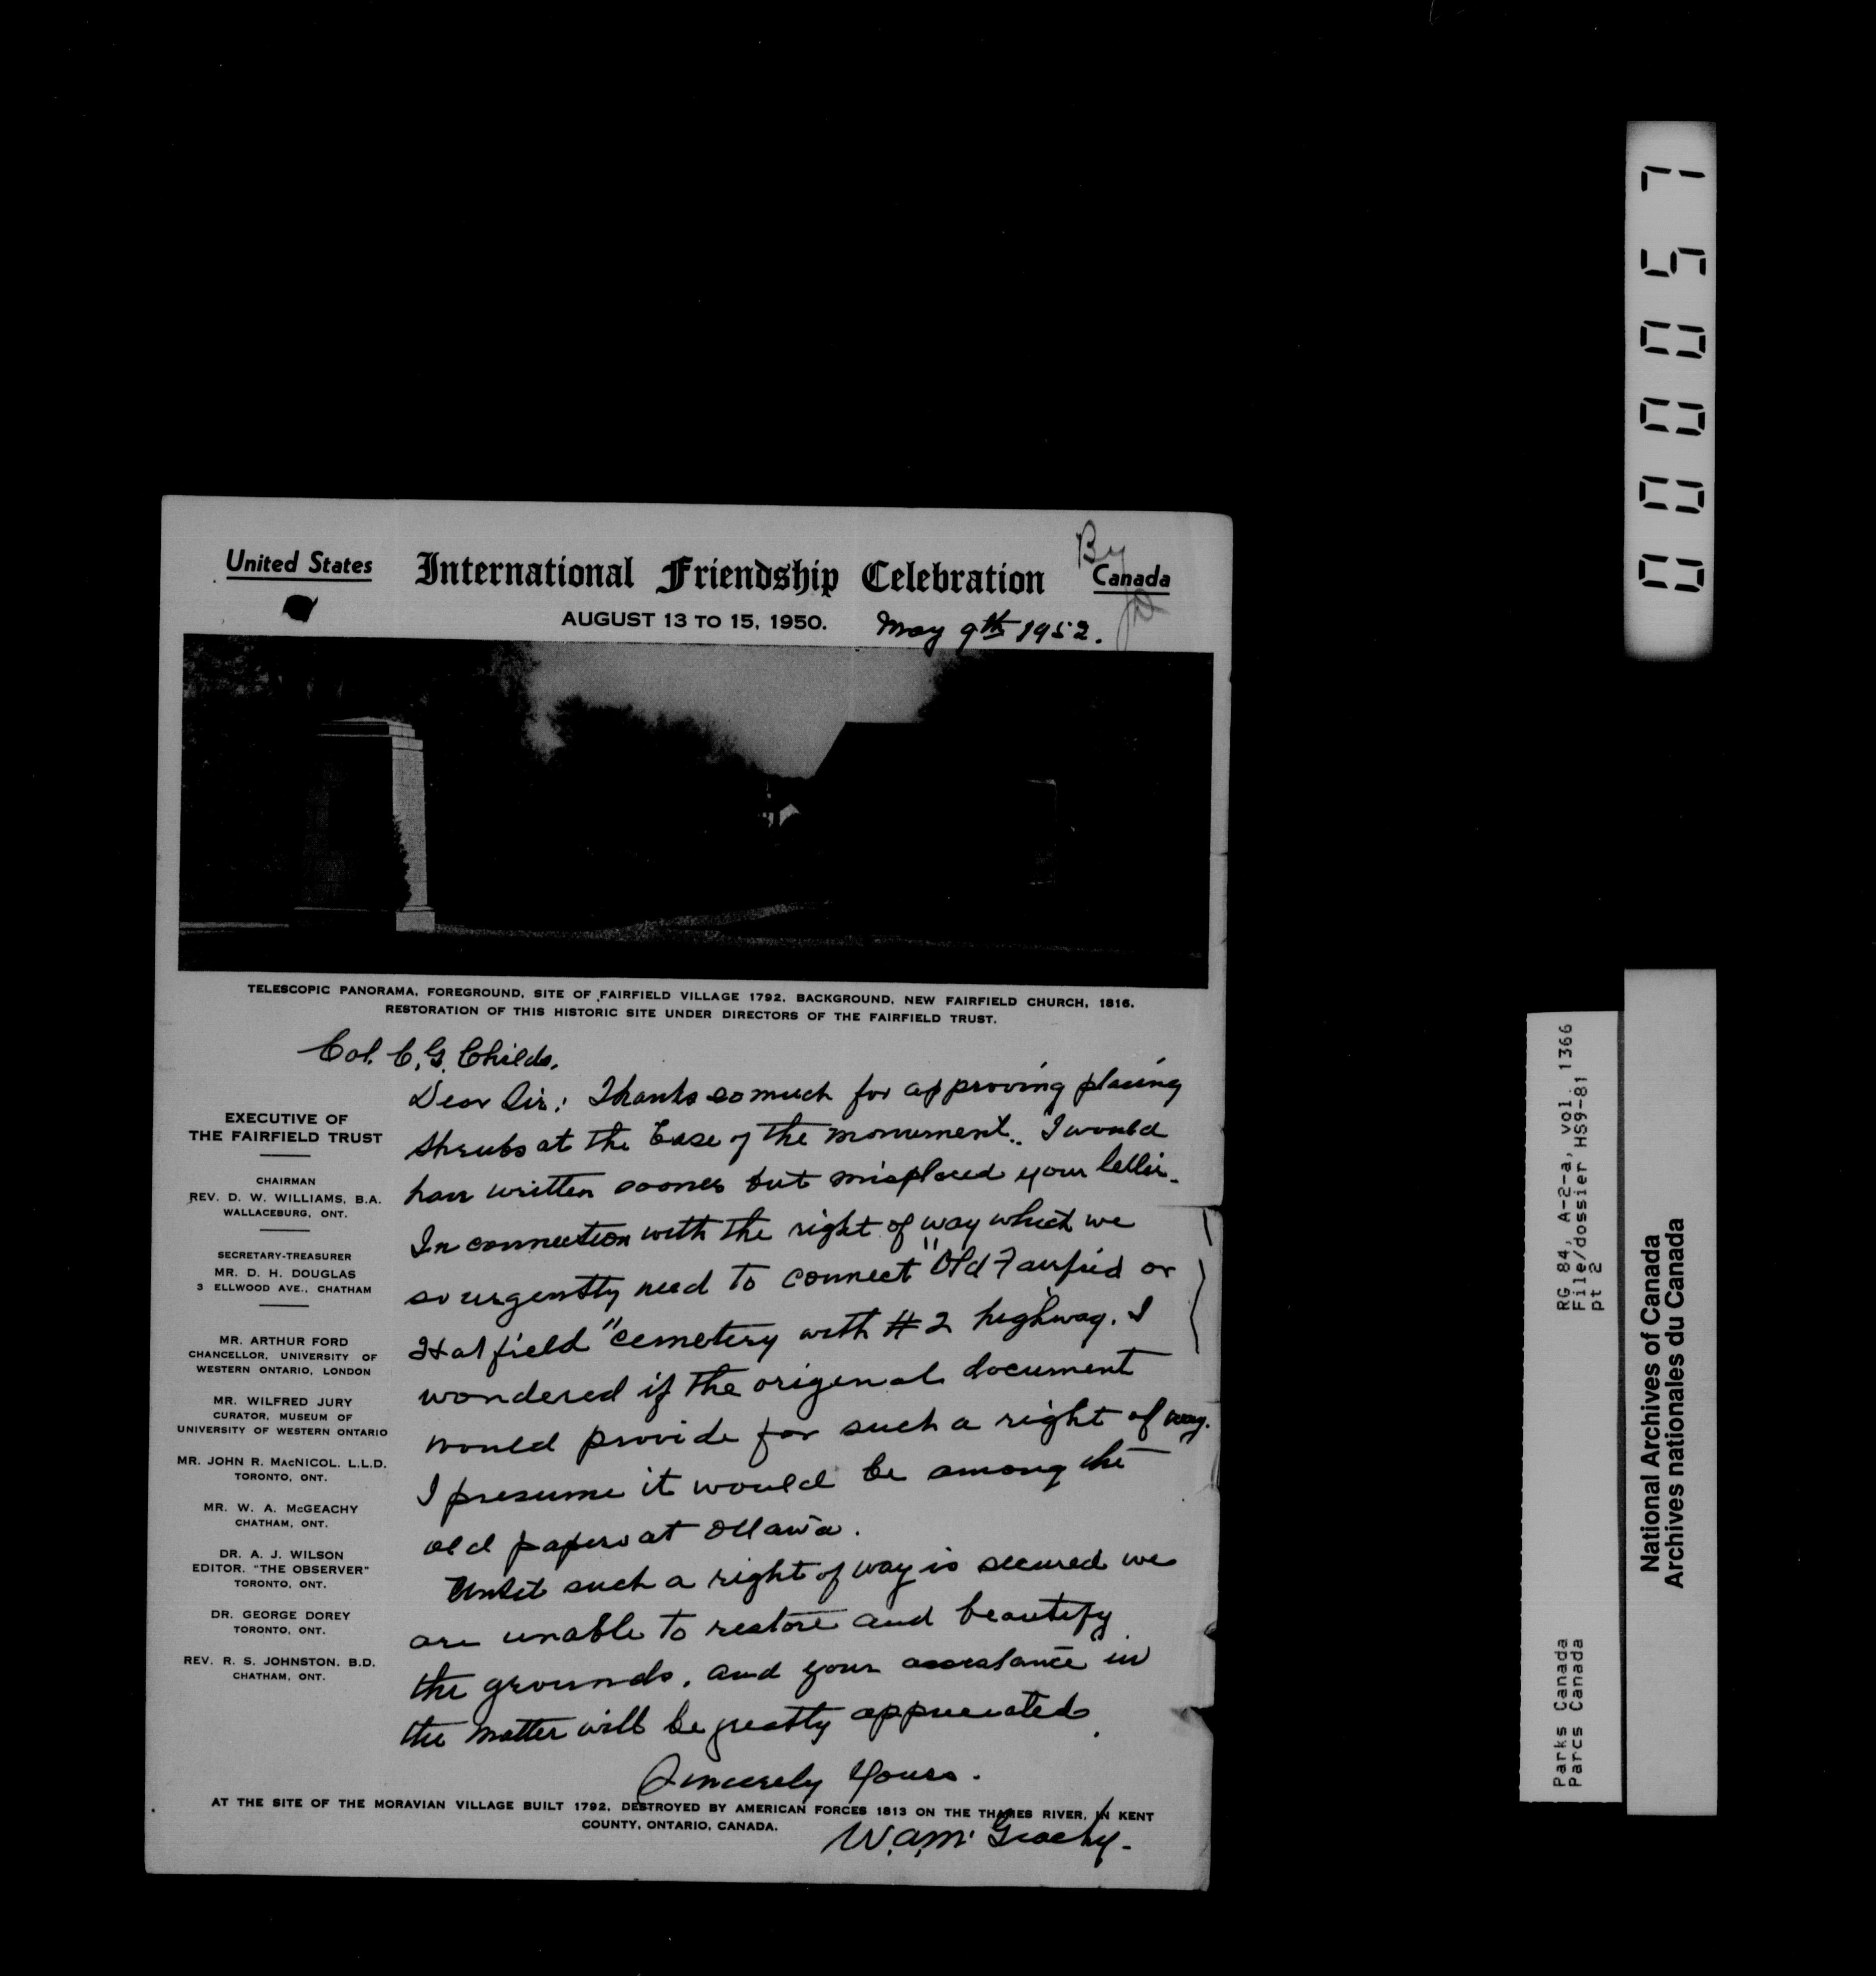 United States
International Friendship Celebration
By
Canada
AUGUST 13 TO 15, 1950.
May 9th 1952.
TELESCOPIC PANORAMA, FOREGROUND, SITE OF FAIRFIELD VILLAGE 1792, BACKGROUND, NEW FAIRFIELD CHURCH, 1816.
RESTORATION OF THIS HISTORIC SITE UNDER DIRECTORS OF THE FAIRFIELD TRUST.
Col. C. G. Childs.
Dear Sir: Thanks so much for approving placing
shrubs at the base of the monument. I would
have written sooner but misplaced your letter.
In connection with the right of way which we
so urgently need to connect "Old Fairfied or
Hatfield" cemetery with #2 highway. I
wondered if the original document
would provide for such a right of way.
I presume it would be among the
old papers at Ottawa.
Until such a right of way is secured we
are unable to restore and beautify
the grounds, and your assistance in
the matter will be greatly appreciated.
Sincerely Yours.
W. A. McGeachy.
EXECUTIVE OF
THE FAIRFIELD TRUST
CHAIRMAN
REV. D. W. WILLIAMS, B.A.
WALLACEBURG, ONT.
SECRETARY-TREASURER
MR. D. H. DOUGLAS
3 ELLWOOD AVE., CHATHAM
MR. ARTHUR FORD
CHANCELLOR, UNIVERSITY OF
WESTERN ONTARIO, LONDON
MR. WILFRED JURY
CURATOR, MUSEUM OF
UNIVERSITY OF WESTERN ONTARIO
MR. JOHN R. MACNICOL, L.L.D.
TORONTO, ONT.
MR. W. A. McGEACHY
CHATHAM, ONT.
DR. A. J. WILSON
EDITOR, "THE OBSERVER"
TORONTO, ONT.
DR. GEORGE DOREY
TORONTO, ONT.
REV. R. S. JOHNSTON, B.D.
CHATHAM, ONT.
AT THE SITE OF THE MORAVIAN VILLAGE BUILT 1792, DESTROYED BY AMERICAN FORCES 1813 ON THE THAMES RIVER, IN KENT
COUNTY, ONTARIO, CANADA.
000057
Parks Canada
Parcs Canada
RG 84, A-2-a, vol. 1366
File/dossier HS9-81
pt 2
National Archives of Canada
Archives nationales du Canada